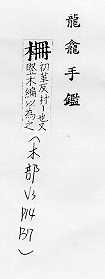 龍龕手鑑
柵
初革反村柵也又
竪木編以為之
(木部
V3
P14
B7)